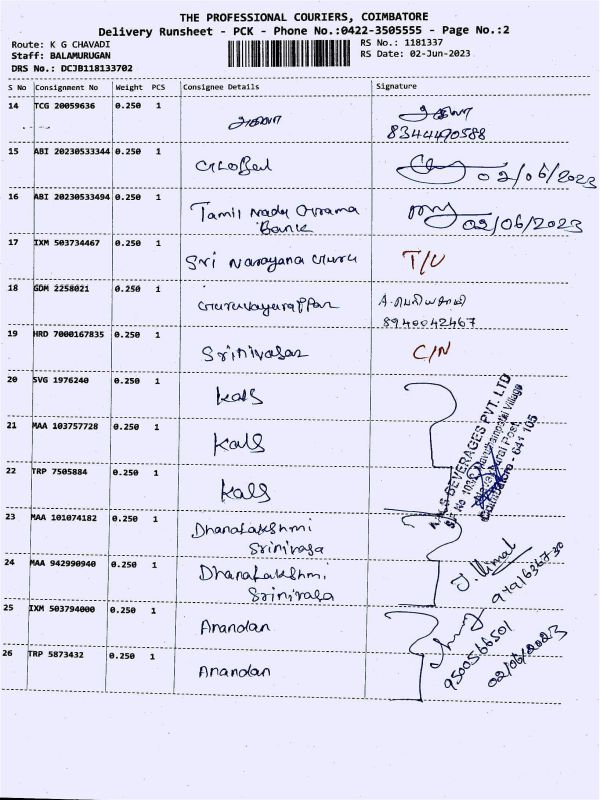 THE PROFESSIONAL COURIERS, COIMBATORE
Delivery Runsheet - PCK - Phone No.:0422-3505555 - Page No.:2
Route: K G CHAVADI
RS No.: 1181337
Staff: BALAMURUGAN
RS Date: 02-Jun-2023
DRS No.: DCJB118133702
S No Consignment No Weight PCS Consignee Details Signature
14 TCG 20059636 0.250 1
8344490588
15 ABI 20230533344 0.250 1 02/06/2023
16 ABI 20230533494 0.250 1 Tamil Nadu Grama
Bank 02/06/2023
17 IXM 503734467 0.250 1 Sri Narayana Guru T/U
18 GDM 2258021 0.250 1 Guruvayurappan
8940042467
19 HRD 7000167835 0.250 1 Srinivasan C/N
20 SVG 1976240 0.250 1 Kals
21 MAA 103757728 0.250 1 Kals
22 TRP 7505884 0.250 1 Kals
BEVERAGES PVT. LTD
641 105
23 MAA 101074182 0.250 1 Dhanalakshmi
Srinivasa
24 MAA 942990940 0.250 1 Dhanalakshmi
Srinivasa
J. Vimal
9491636730
25 IXM 503794000 0.250 1 Anandan
26 TRP 5873432 0.250 1 Anandan
9500566501
02/06/2023